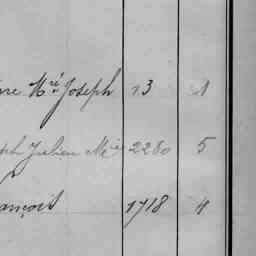 rre Mie Joseph 13 1
ph Julien Mie 2280 5
ançois 1718 4